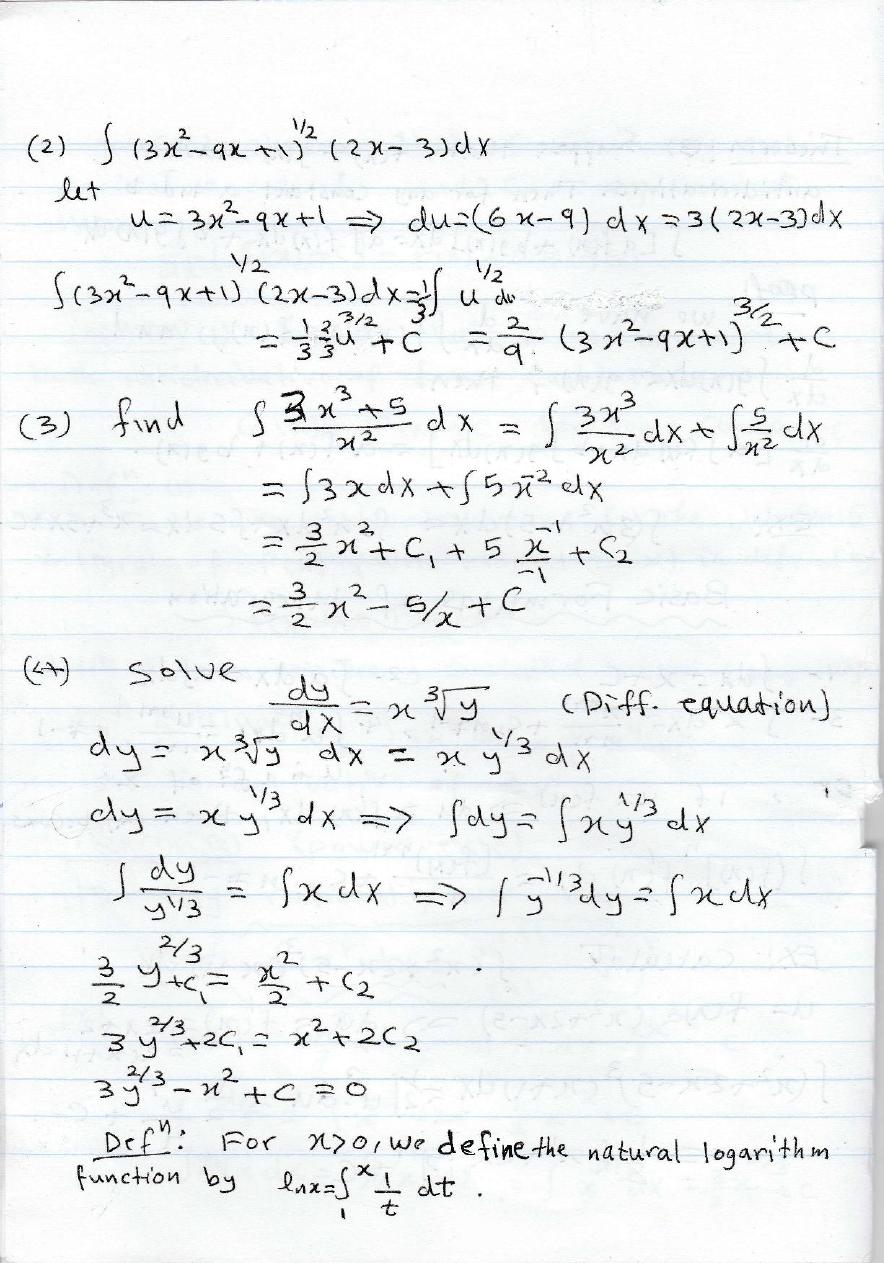 (2) ∫ (3x²-9x+1)^1/2 (2x-3)dx
let
u = 3x²-9x+1 ⇒ du=(6x-9) dx = 3(2x-3)dx
∫(3x²-9x+1)^1/2 (2x-3)dx = 1/3 ∫ u^1/2 du
= 1/3 2/3 u^3/2 + C = 2/9 (3x²-9x+1)^3/2 + C
(3) find ∫ 3x³+5/x² dx = ∫ 3x³/x² dx + ∫ 5/x² dx
= ∫3x dx + ∫5x⁻² dx
= 3/2 x² + C₁ + 5 x⁻¹/-1 + C₂
= 3/2 x² - 5/x + C
(4) Solve
dy/dx = x ∛y (Diff. equation)
dy = x ∛y dx = x y^1/3 dx
dy = x y^1/3 dx ⇒ ∫dy = ∫x y^1/3 dx
∫ dy/y^1/3 = ∫x dx ⇒ ∫ y^-1/3 dy = ∫x dx
3/2 y^2/3 + C₁ = x²/2 + C₂
3y^2/3 + 2C₁ = x² + 2C₂
3y^2/3 - x² + C = 0
Defⁿ: For x>0, we define the natural logarithm
function by lnx = ∫₁ˣ 1/t dt .